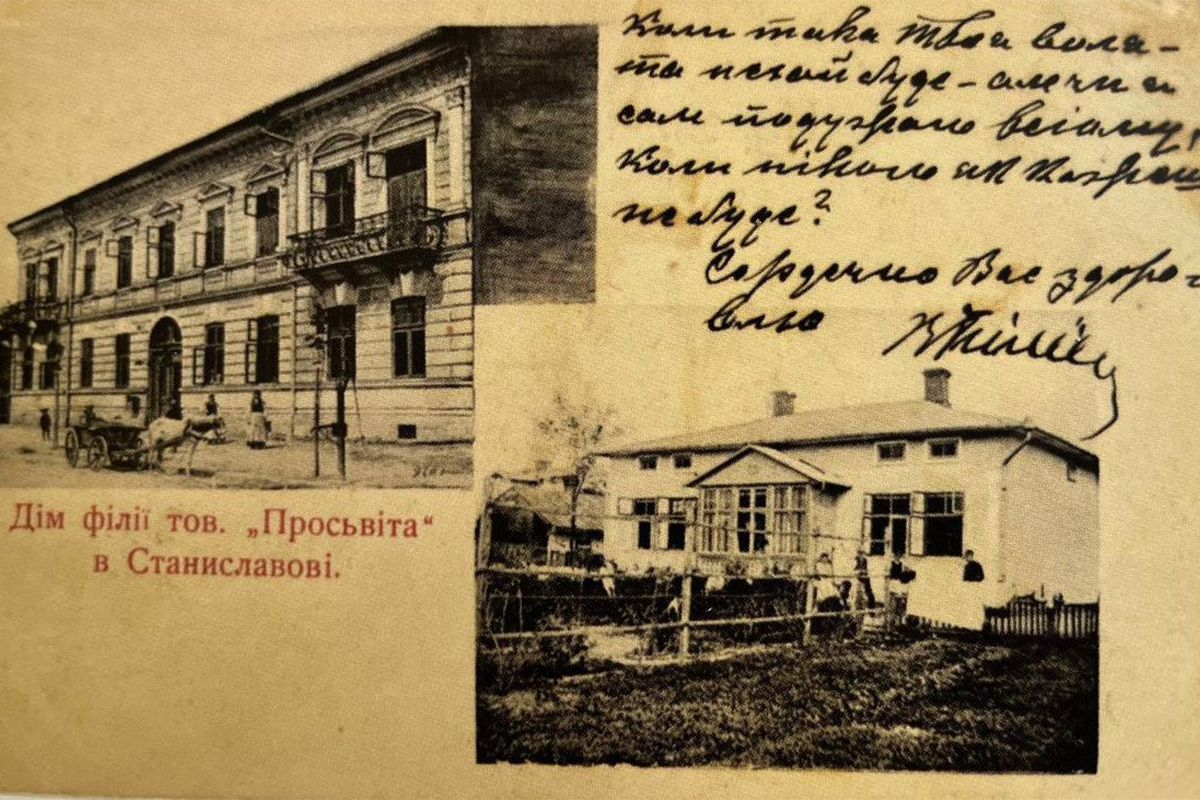 Коли така Твоя воля —
та нехай буде — але чи я
сам подужаю всьому,
коли нікого
не буде?
Сердечно Вас здоро-
влю
Дім філії тов. „Просьвіта“
в Станиславові.